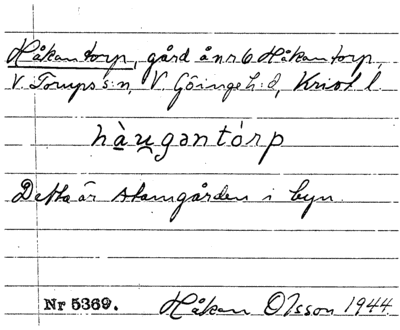 Håkantorp, gård å nr 6 Håkantorp,
V. Torups s:n, V. Göinge h:d, Krist l.
hàu̯gəntórp
Detta är stamgården i byn.
Nr 5369. Håkan Olsson 1944